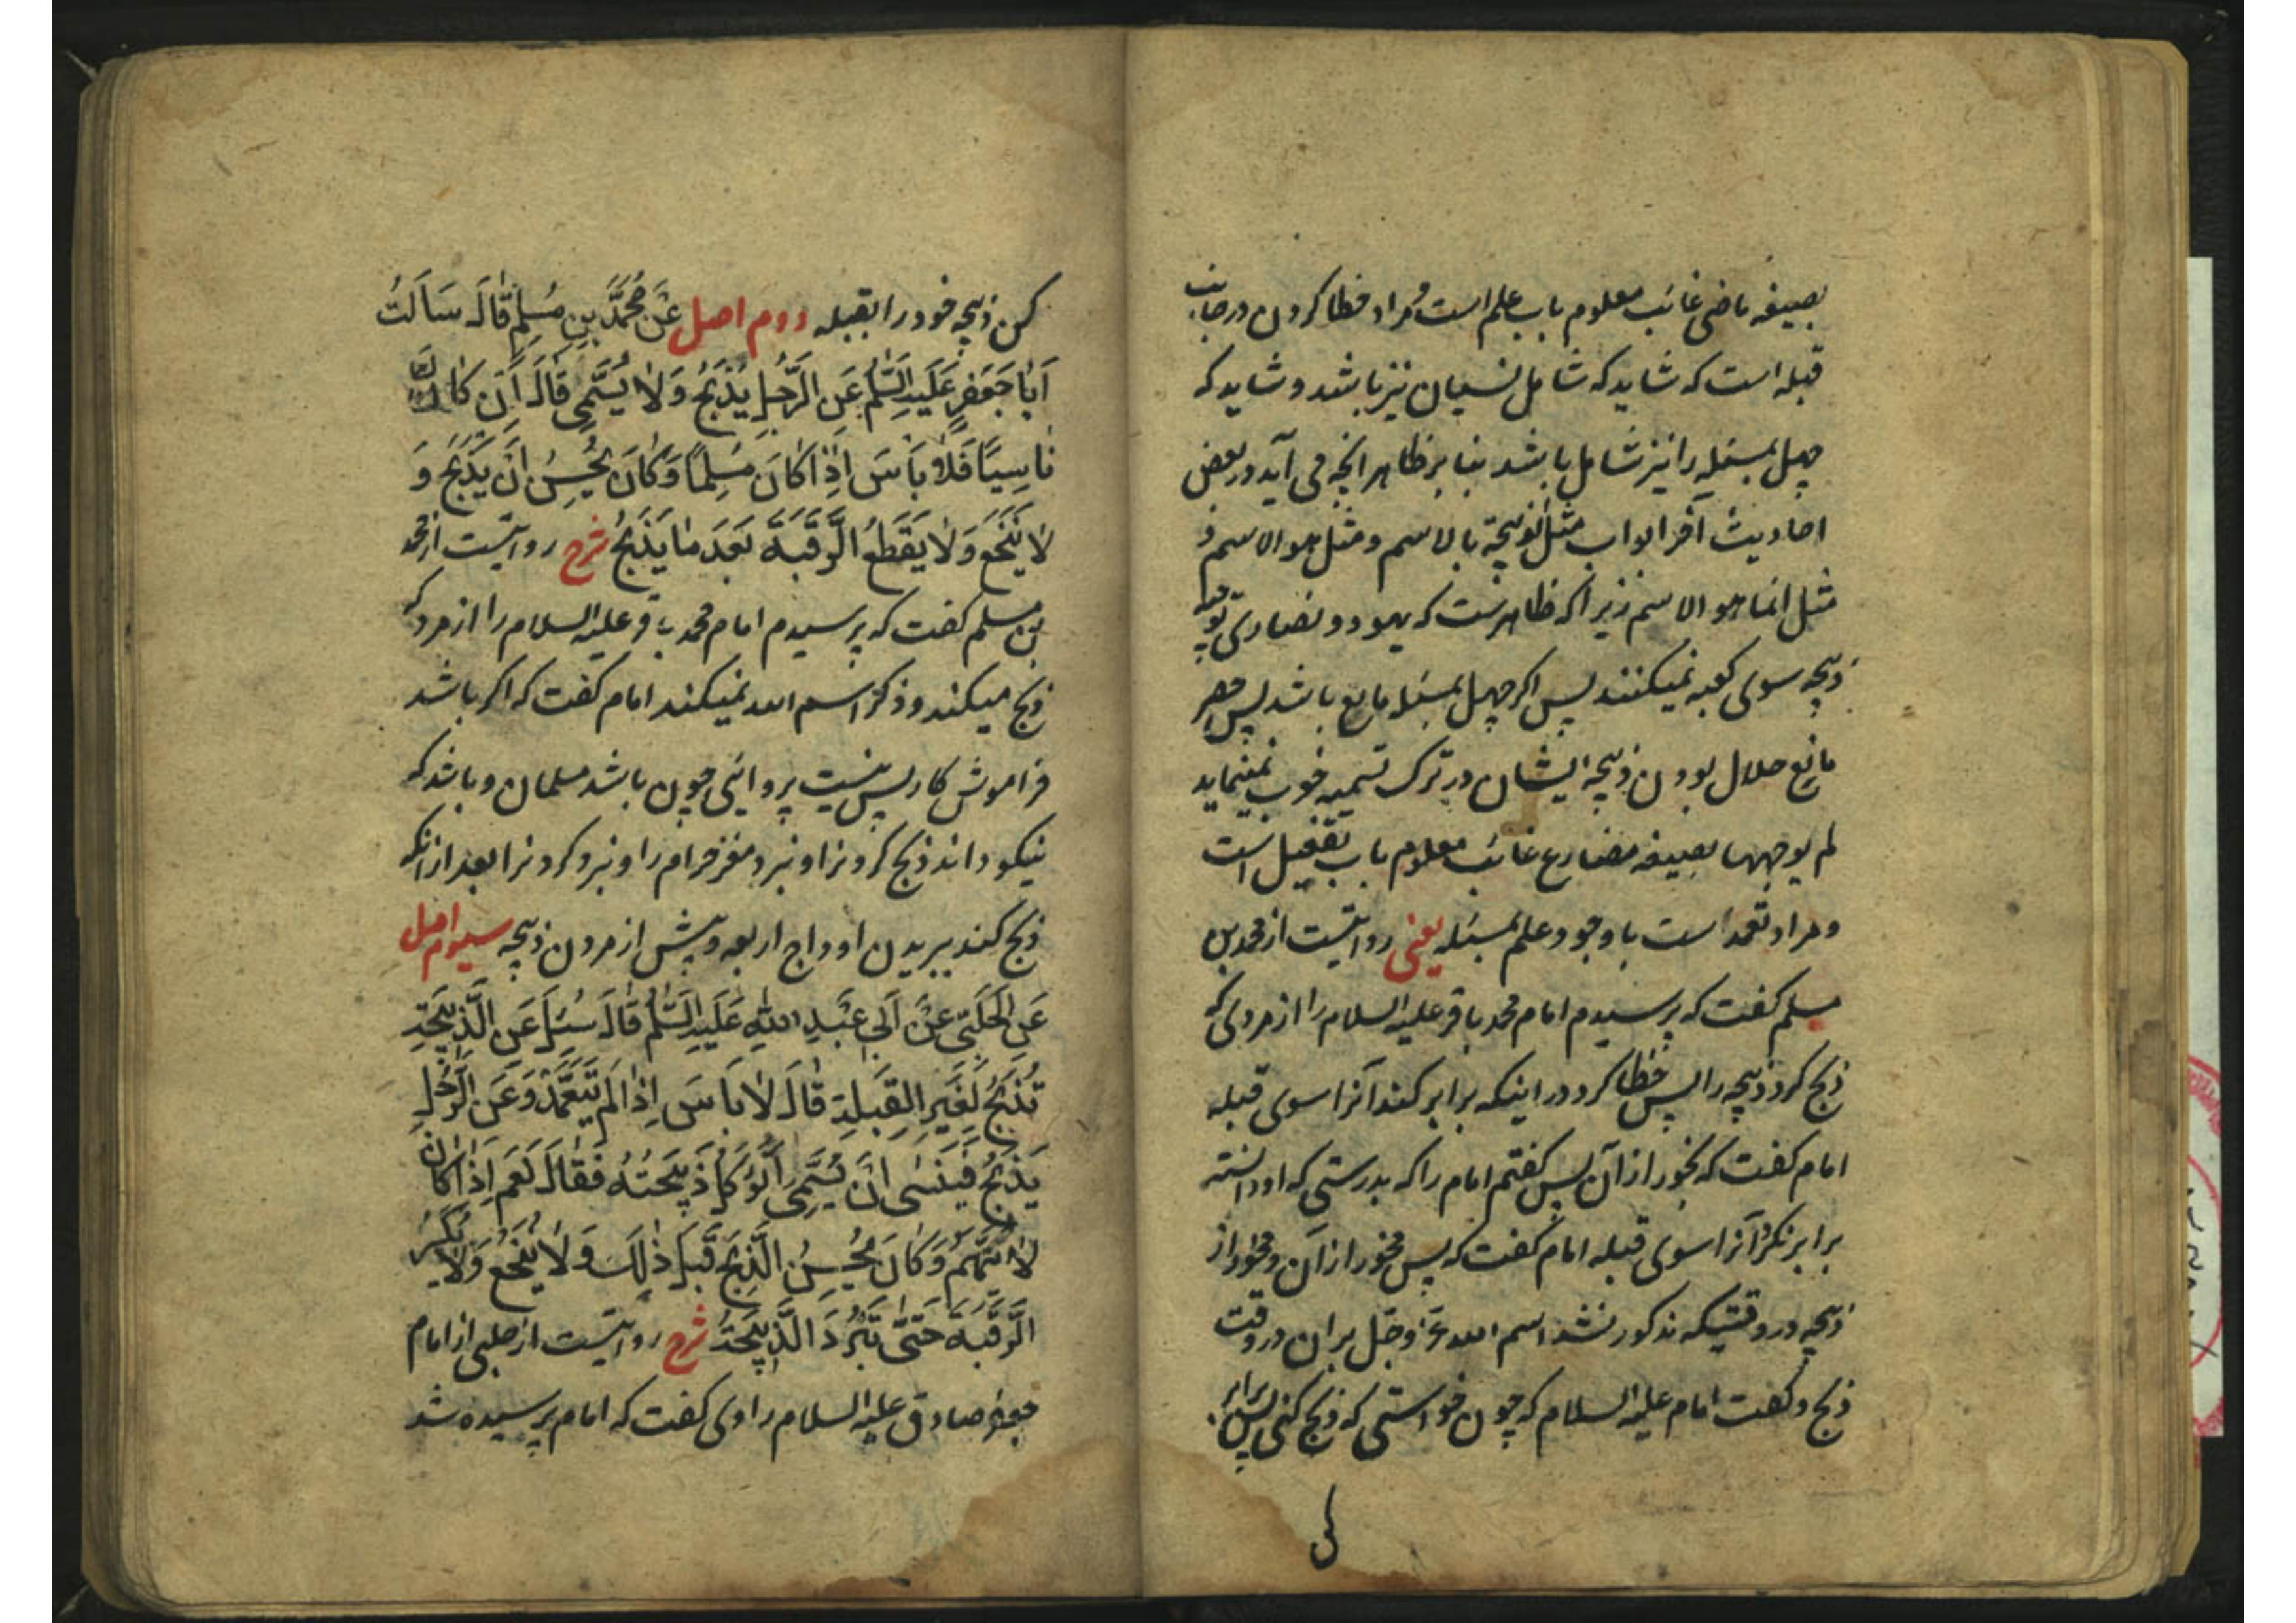 بصیغه ماضی غائب معلوم باب علم است و مراد خطا کردن در جانب
قبله است که شاید که شامل نسیان نیز باشد و شاید که
جهل بمسئله را نیز شامل باشد بنا بر ظاهر انچه می آید در بعض
احادیث آخر ابواب مثل الذبیحة بالاسم و مثل هو الاسم و
مثل انما هو الاسم زیرا که ظاهرست که یهود و نصاری توجیه
ذبیحه سوی کعبه نمیکنند پس اگر جهل بمسئله مانع باشد پس حصر
مانع حلال بودن ذبیحه ایشان در ترک تسمیه خوب نمینماید
لم یوجهها بصیغه مضارع غائب معلوم باب تفعیل است
و مراد تعمد است با وجود علم بمسئله یعنی روایتست از محمد بن
مسلم گفت که پرسیدم امام محمد باقر علیه السلام را از مردی که
ذبح کرد ذبیحه را پس خطا کرد در اینکه برابر کند آنرا سوی قبله
امام گفت که بخور از آن پس گفتم امام را که بدرستی که او دانسته
برابر نکرد آنرا سوی قبله امام گفت که پس مخور از آن و مخور از
ذبیحه در وقتیکه مذکور نشد اسم الله عز وجل بران در وقت
ذبح و گفت امام علیه السلام که چون خواستی که ذبح کنی پس برابر
کن
کن ذبیحه خود را بقبله دوم اصل عَنْ مُحَمَّدِ بنِ مُسْلِمٍ قالَ سَاَلْتُ
اَبا جَعْفَرٍ عَلَیْهِ السَّلٰمُ عَنِ الرَّجُلِ یَذْبَحُ وَلا یُسَمّی قالَ اِنْ کانَ
ناسِیًا فَلا بَاْسَ اِذا کانَ مُسْلِمًا وَ کانَ یُحْسِنُ اَنْ یَذْبَحَ وَ
لا یَنْخَعَ وَلا یَقْطَعُ الرَّقَبَةَ بَعْدَ ما یَذْبَحُ شرح روایتست از محمد
بن مسلم گفت که پرسیدم امام محمد باقر علیه السلام را از مرد که
ذبح میکند و ذکر اسم الله نمیکند امام گفت که اگر باشد
فراموش کار پس نیست پروائی چون باشد مسلمان و باشد که
نیکو داند ذبح کردنرا و نبرد مغز حرام را و نبرد کردنرا بعد از انکه
ذبح کند ببریدن اوداج اربعه و پیش از مردن ذبیحه سیوم اصل
عَنِ الْحَلَبِیِّ عَنْ اَبی عَبْدِ اللهِ عَلَیْهِ السَّلٰمُ قالَ سُئِلَ عَنِ الَّذبیحَةِ
تُذْبَحُ لِغَیْرِ القِبْلَةِ قالَ لا بَاْسَ اِذا لَمْ یَتَعَمَّدْ وَعَنِ الرَّجُلِ
یَذْبَحُ فَیَنْسٰی اَنْ یُسَمِّیَ اَتُؤْکَلُ ذَبیحَتُهُ فَقالَ نَعَمْ اِذا کانَ
لا یُتَّهَمُ وَ کانَ یُحْسِنُ الَّذبْحَ قَبْلَ ذٰلِکَ وَلا یَنْخَعُ وَلا یَکْسِرُ
الرَّقَبَةَ حَتّیٰ تَبْرُدَ الَّذبیحَةُ شرح روایتست از حلبی از امام
جعفر صادق علیه السلام راوی گفت که امام پرسیده شد